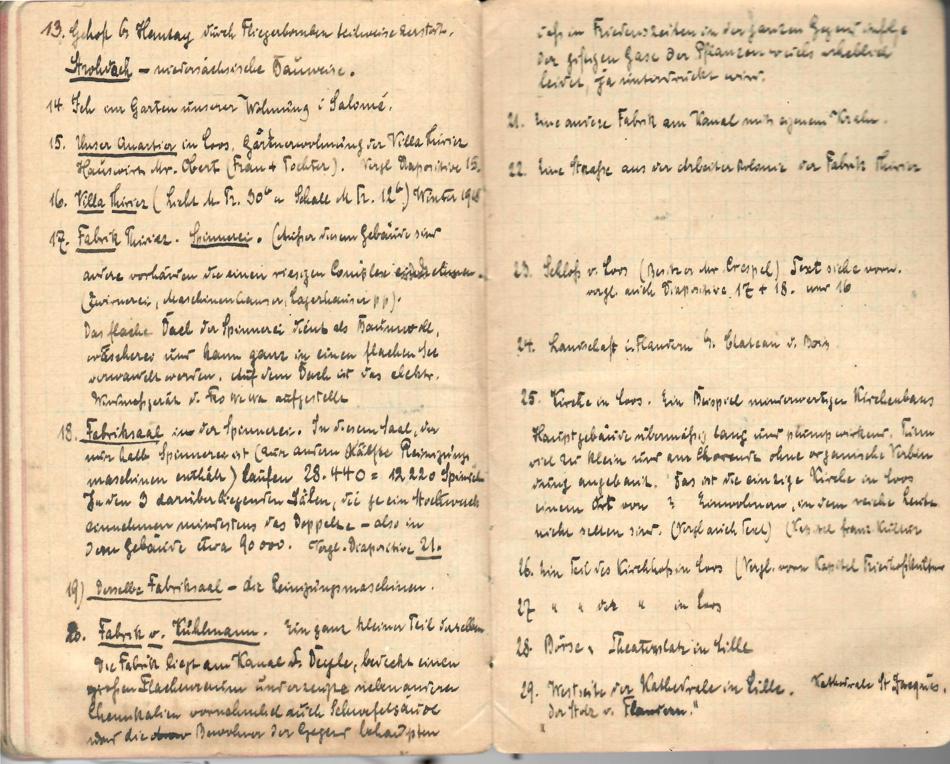 13. Gehöft bei Hantay durch Fliegerbomben teilweise zerstört.
Strohdach – niedersächsische Bauweise.
14. Ich im Garten unserer Wohnung i. Salomé.
15. Unser Quartier in Loos, Gärtnerwohnung der Villa Thiriez
Hauswirth Mr. Obert (Frau + Tochter). Vergl Diapositive 15.
16. Villa Thiriez (Licht M Fr. 30 u Schale M Fr. 12) Winter
17. Fabrik Thiriez. Spinnerei. (Außer diesem Gebäude sind
andere vorhanden die einen riesigen Complexe
(Zwirnerei, Maschinenhäuser, Lagerhäuser pp).
Das flache Dach der Spinnerei dient als Baumwoll,
und kann ganz in einen flachen See
verwandelt werden. Auf dem Dach ist das elektr.
Windmeßgerät d. aufgestellt
18. Fabriksaal in der Spinnerei. In diesem Saal, der
nur halb Spinnerei ist (zur andern Hälfte Reinigungs
maschinen enthält) laufen 28.440 = 12220 Spindel
In den 3 darüberliegenden Sälen, die je ein Stockwerk
einnehmen mindestens das Doppelte – also in
dem Gebäude etwa 90000. Vergl. Diapositive 21.
19) Derselbe Fabriksaal – die Reinigungsmaschinen.
20. Fabrik v. Kuhlmann. Ein ganz kleiner Teil derselben
Die Fabrik liegt am Kanal d. Deule, bedeckt einen
großen Flächenraum und erzeugt neben anderen
Chemikalien vornehmlich auch Schwefelsäure
und die Bewohner der Gegend behaupten
daß in Friedenszeiten in der ganzen Gegend infolge
der giftigen Gase der Pflanzenwuchs erheblich
leidet, ja unterdrückt wird.
21. Eine andere Fabrik am Kanal mit eigenem Krahn.
22. Eine Straße aus der Arbeiterkolonie der Fabrik Thiriez
23. Schloß v. Loos (Besitzer Mr. Crespel) Text siehe vorn.
vergl. auch Diapositive 17 + 18. und 16
24. Landschaft i. Flandern b. Chateau d. Bois
25. Kirche in Loos. Ein Beispiel minderwertigen Kirchenbaus
Hauptgebäude übermäßig lang und plump wirkend. Turm
viel zu klein und am Chorende ohne organische Verbin
dung angebaut. Das ist die einzige Kirche in Loos
einem Ort von ? Einwohnern, in dem reiche Leute
nicht selten sind. (Vergl auch Text) (Kapitel franz. Kultur
26. Ein Teil des Kirchhofs in Loos (Vergl. vorn Kapitel Friedhofkultur
27 " " des " in Loos
28. Börse u. Theaterplatz in Lille
29. Westseite der Kathedrale in Lille. Kathedrale St Jacques.
"Der Stolz v. Flandern."